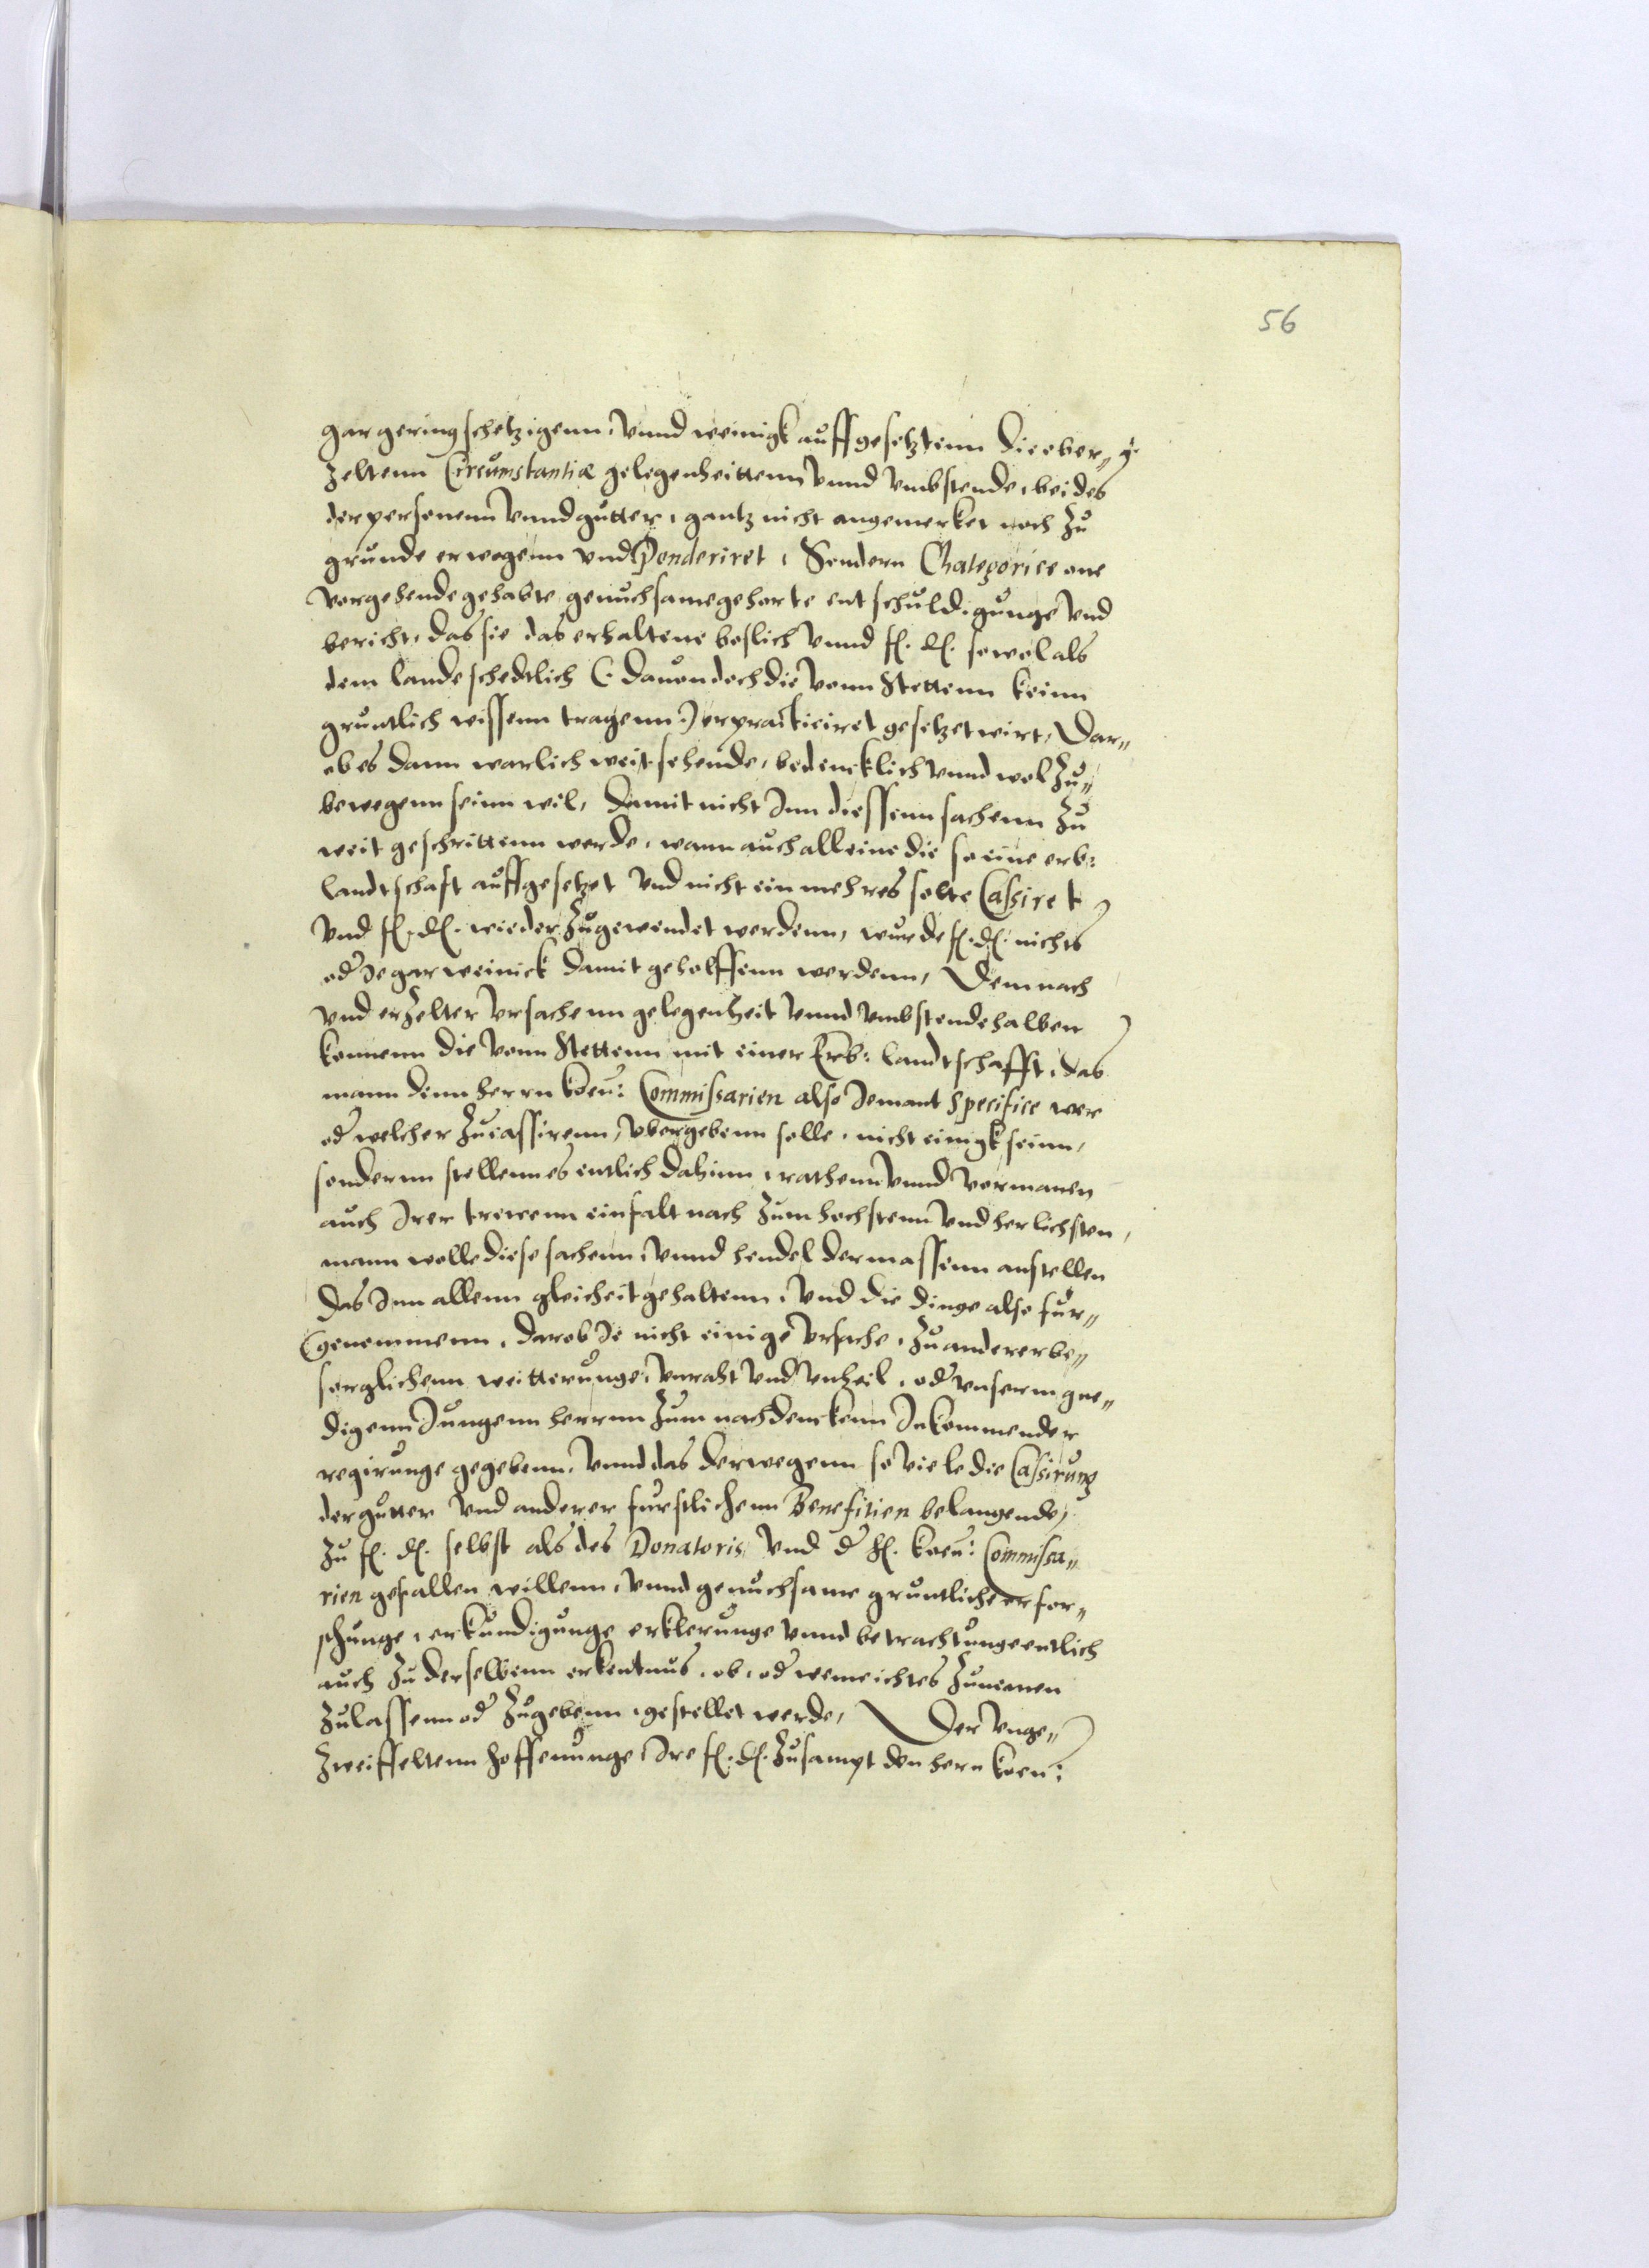 56
gar geringschetzigenn, vnnd weinigk auffgesetztenn die ober„
zeltenn Circumstantiæ gelegenheittenn vnnd vmbstende, beides
der personenn vnnd gutter, gantz nicht angemerket noch zu
grunde erwogenn vnd Ponderiret, Sondern Chategorice one
vorgehende gehabte genuchsame gehorte entschuldigunge vnd
bericht, das sie das erhaltene boslich vnnd f. d. sowol als
dem lande schedtlich (: dauon doch die vonn Stettenn keinn
gruntlich wissenn tragenn :) erpracticiret gesetzet wirt, Dar„
ob es dann warlich weit sehende, bedencklich vnnd wol zu„
bewegenn seinn wil, Damit nicht Inn diessenn sachenn zu
weit geschrittenn werde, wann auch alleine die so eine erb:
landtschaft auffgesetzet vnd nicht ein mehres solte Cassiret
vnd f. d. wieder zugewendet werdenn, wurde f. d. nichts
od Je gar weinick damit geholffenn werdenn, Demnach
vnd erzelter vrsachenn gelegenheit vnnd vmbstende halben
konnenn die vonn Stettenn mit einer Erb: landtschafft, das
mann denn herrn Koen: Commissarien also Jemant Specifice wer
od welcher zucassirenn, vbergebenn solle, nicht einigk seinn,
sondernn stellenn es entlich dahinn, rathenn vnnd vormanen
auch Irer trewenn einfalt nach zum hochstenn vnd herlichsten,
mann wolle diese sachenn, vnnd hendel dermassenn anstellen
das Inn allenn gleicheit gehaltenn, vnd die dinge also fur„
genommenn, darob Je nicht einige vrsache, zu anderer be„
sorglichenn weitterunge, vnraht vnd vnheil, od vnserm gne„
digenn Jungenn herrnn zum nachdenckenn In kommender
regirunge gegebenn, vnnd das derwegenn so viele die Cassirung
der gutter vnd anderer furstlichenn Benefitien belangende,
zu f. d. selbst als des Donatoris vnd d h. koen: Commissa„
rien gefallen willenn, vnnd genuchsame gruntliche erfor„
schunge, erkundigunge erklerunge vnnd betrachtunge entlich
auch zu derselbenn erkentnus, ob, od weme ichtes zunemen
zulassenn od zugebenn, gestellet werde, Der vnge„
zweiffeltenn hoffenunge, Ire f. d. zusampt den hern koen: